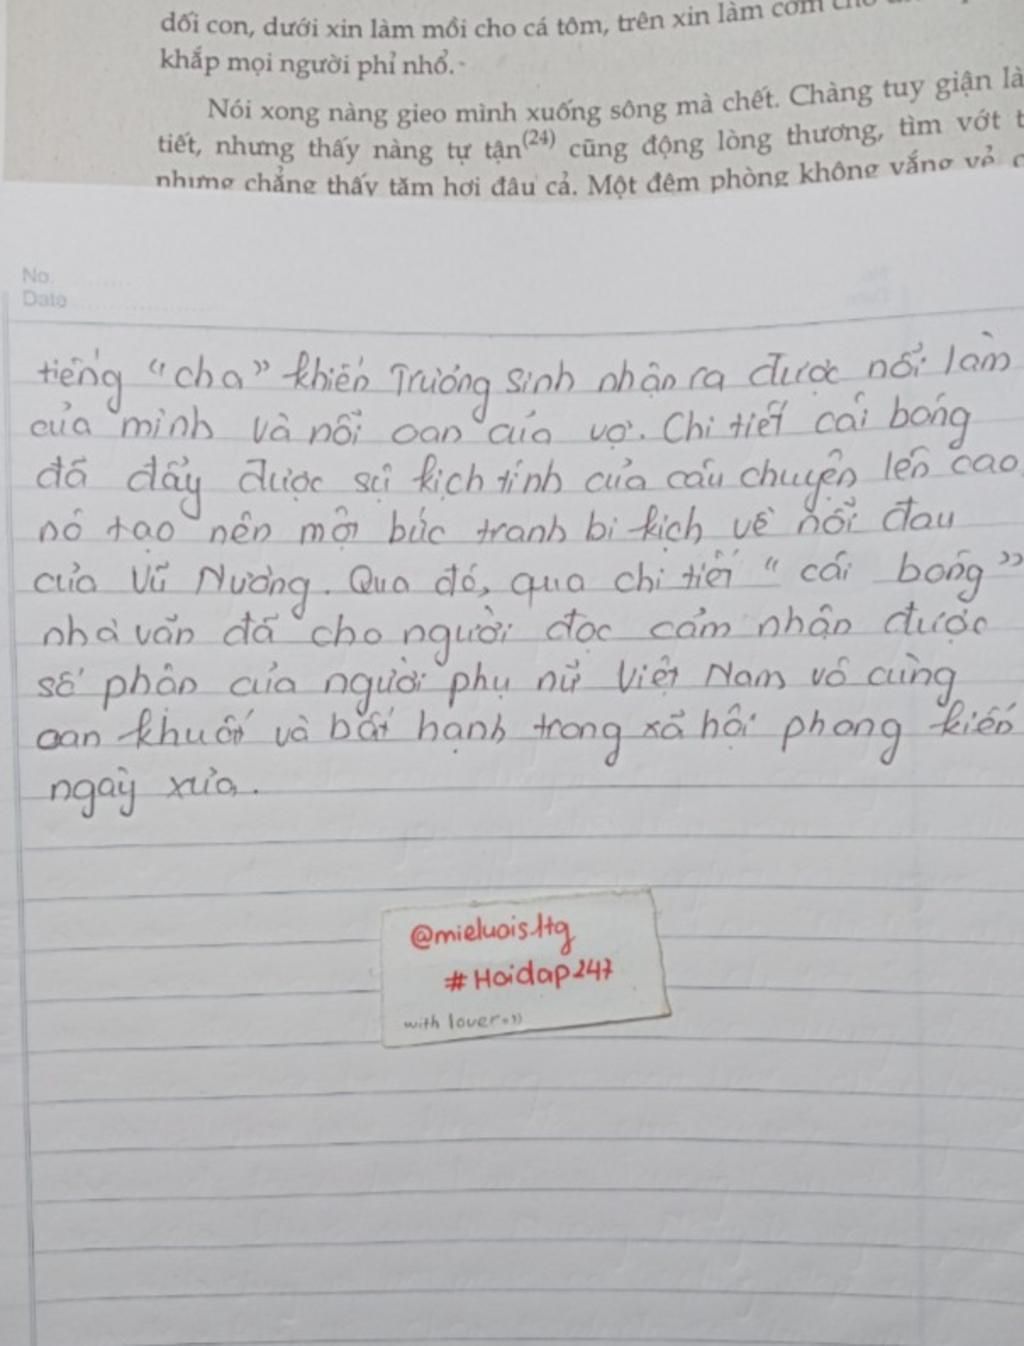 dối con, dưới xin làm mồi cho cá tôm, trên xin làm cơm
khắp mọi người phỉ nhổ.
Nói xong nàng gieo mình xuống sông mà chết. Chàng tuy giận là
tiết, nhưng thấy nàng tự tận(24) cũng động lòng thương, tìm vớt t
nhưng chẳng thấy tăm hơi đâu cả. Một đêm phòng không vắng vẻ
No.
Date
tiếng "cha" khiến Trương Sinh nhận ra được nỗi lầm
của mình và nỗi oan của vợ. Chi tiết cái bóng
đã đẩy được sự kịch tính của câu chuyện lên cao
nó tạo nên một bức tranh bi kịch về nỗi đau
của Vũ Nương. Qua đó, qua chi tiết "cái bóng"
nhà văn đã cho người đọc cảm nhận được
số phận của người phụ nữ Việt Nam vô cùng
oan khuất và bất hạnh trong xã hội phong kiến
ngày xưa.
@mieluois.ltg
#Hoidap247
with lover=))